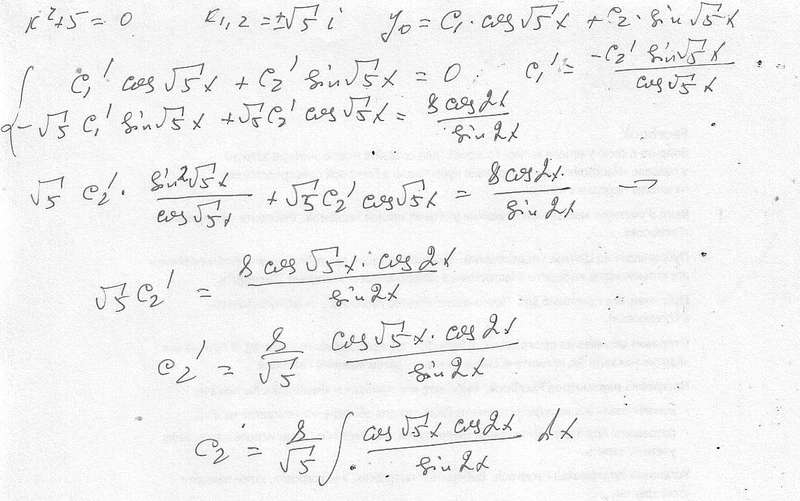 k²+5=0 k₁,₂=±√5 i y₀=C₁·cos√5x+C₂·sin√5x
{ C₁' cos√5x + C₂' sin√5x = 0 ; C₁' = -C₂' sin√5x / cos√5x
-√5 C₁' sin√5x + √5 C₂' cos√5x = 8cos2x / sin2x
√5 C₂' · sin²√5x / cos√5x + √5 C₂' cos√5x = 8cos2x / sin2x →
√5 C₂' = 8 cos√5x · cos2x / sin2x
C₂' = 8/√5 cos√5x · cos2x / sin2x
C₂ = 8/√5 ∫ cos√5x cos2x / sin2x dx